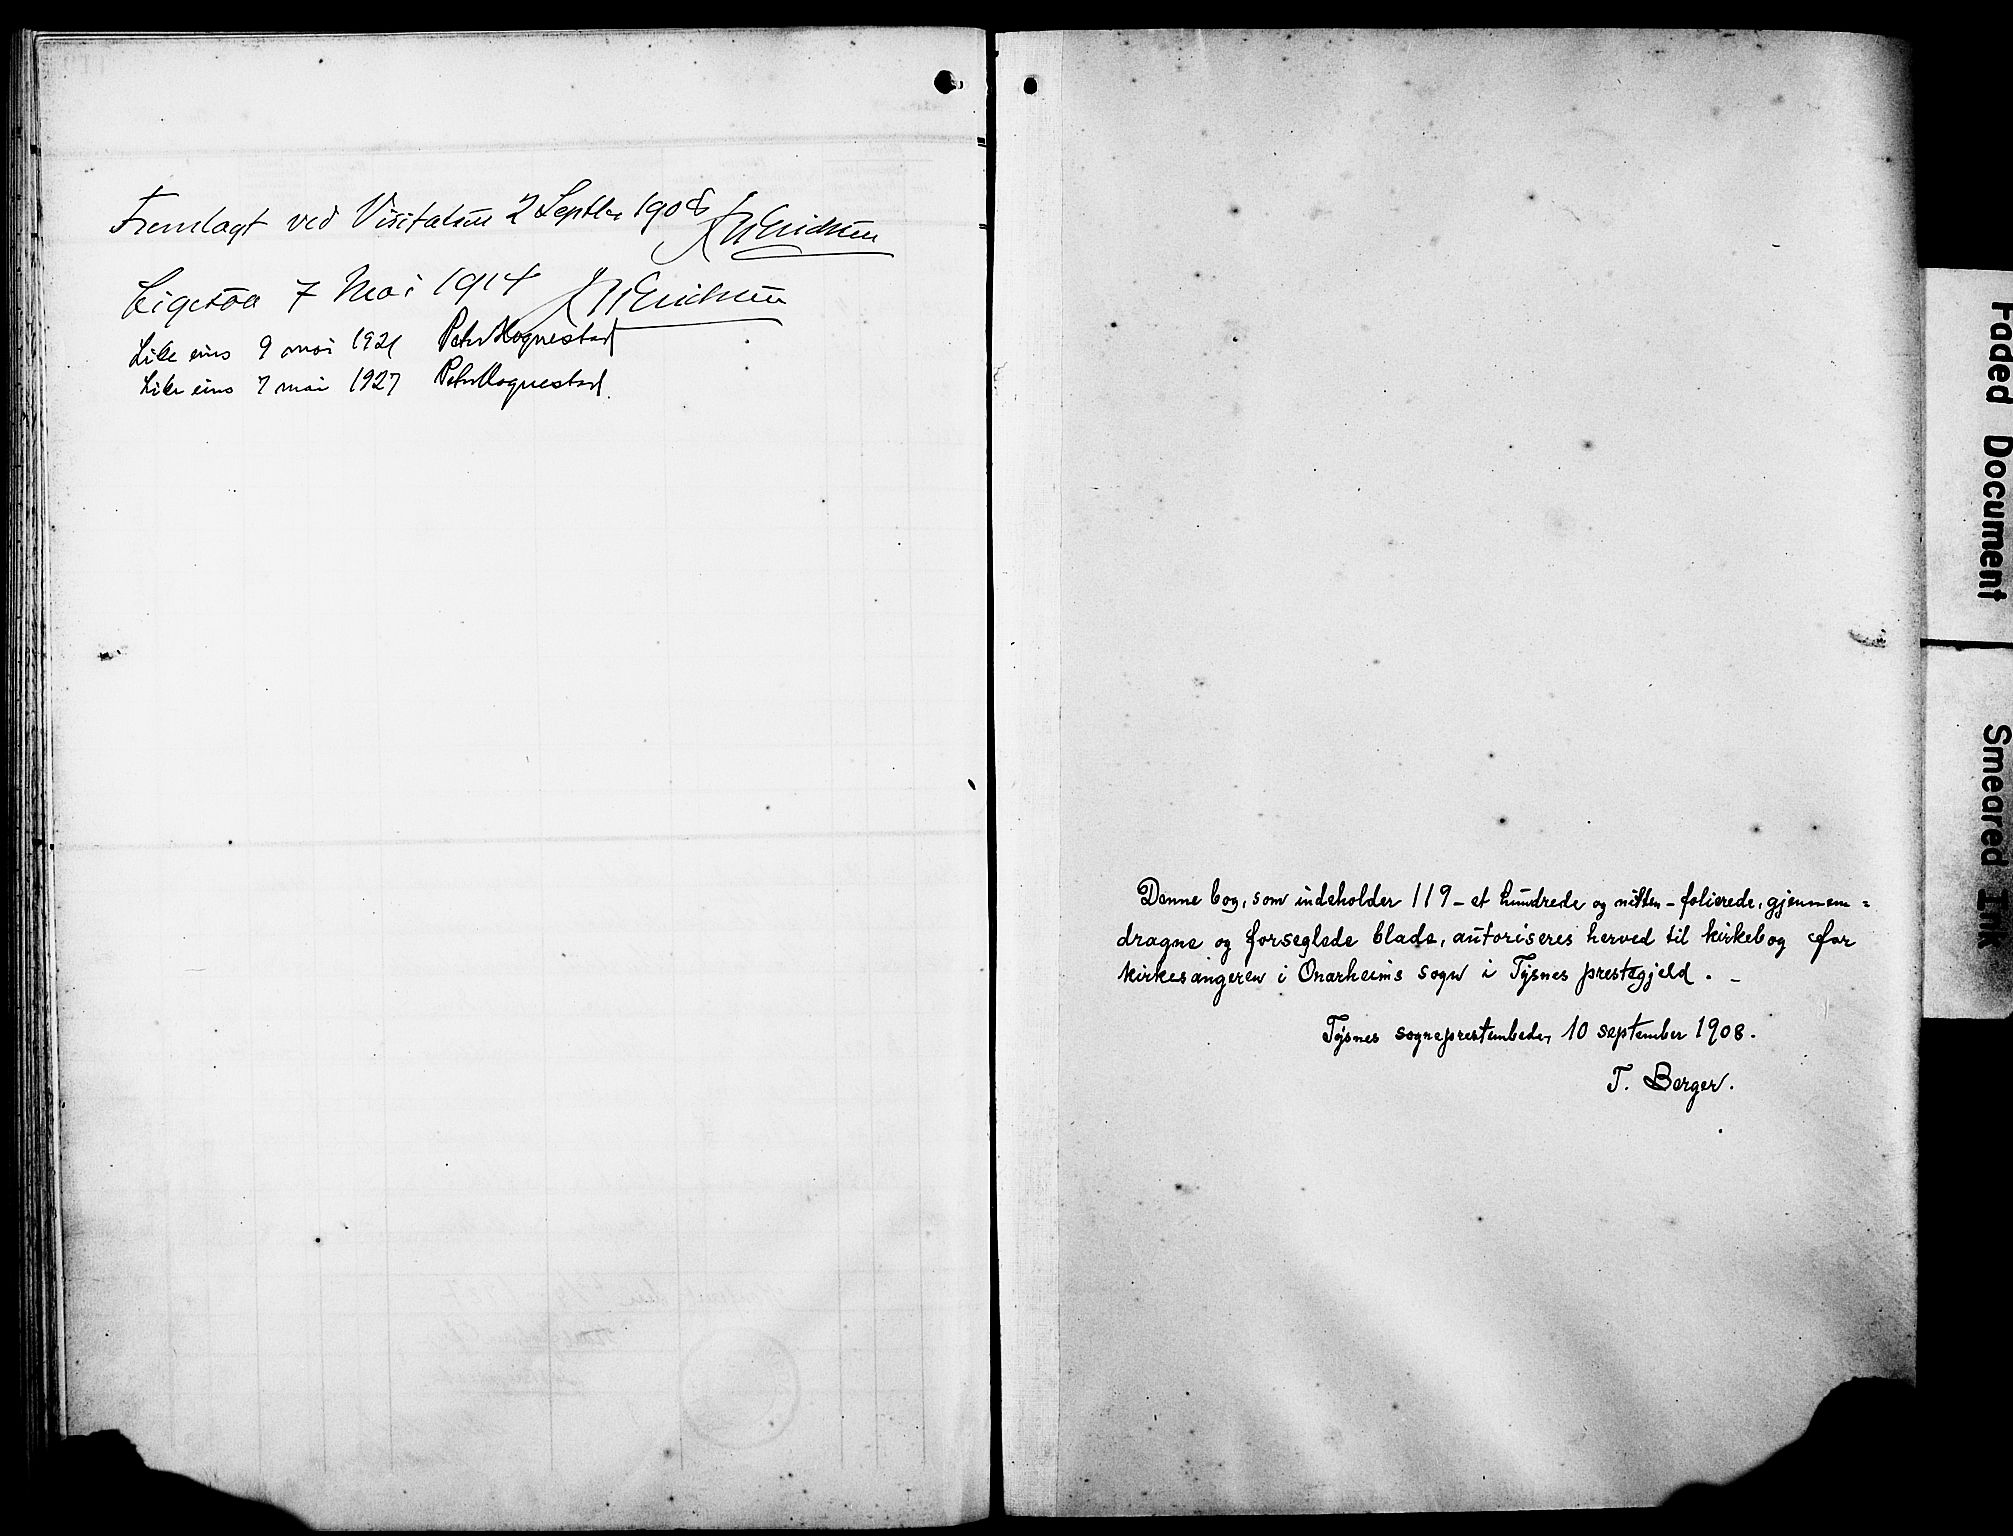 Fremlagt ved Visitatsen 2 Septbr 1908 J W Erichsen
Ligesaa 7 Mai 1914 J W Erichsen
Like eins 9 mai 1921 Peter Hognestad
Like eins 7 mai 1927 Peter Hognestad.
Denne bog, som indeholder 119 – et hundrede og nitten – folierede, gjennem=
dragne og forseglede blade, autoriseres herved til kirkebog for
kirkesangeren i Onarheims sogn i Tysnes prestegjeld. –
Tysnes sogneprestembede, 10 september 1908.
T. Berger.
Faded Document
Smeared Ink